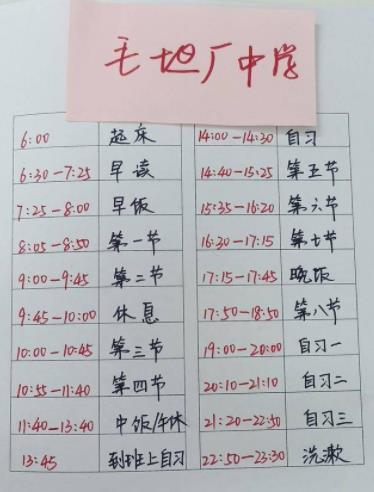 毛坦厂中学
6:00 起床 14:00-14:30 自习
6:30-7:25 早读 14:40-15:25 第五节
7:25-8:00 早饭 15:35-16:20 第六节
8:05-8:50 第一节 16:30-17:15 第七节
9:00-9:45 第二节 17:15-17:45 晚饭
9:45-10:00 休息 17:50-18:50 第八节
10:00-10:45 第三节 19:00-20:00 自习一
10:55-11:40 第四节 20:10-21:10 自习二
11:40-13:40 中饭/午休 21:20-22:50 自习三
13:45 到班上自习 22:50-23:30 洗漱